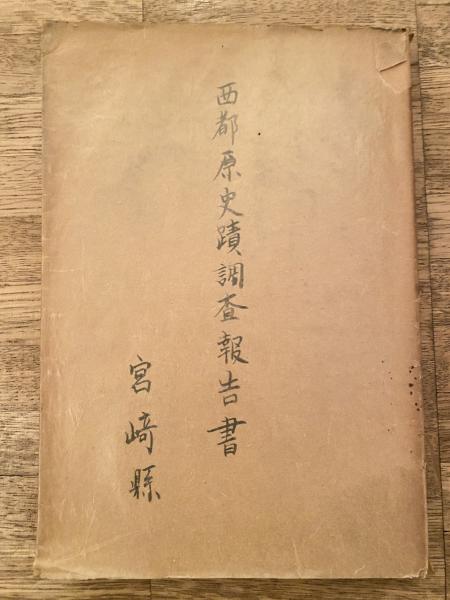 西都原史蹟調査報告書
宮﨑縣